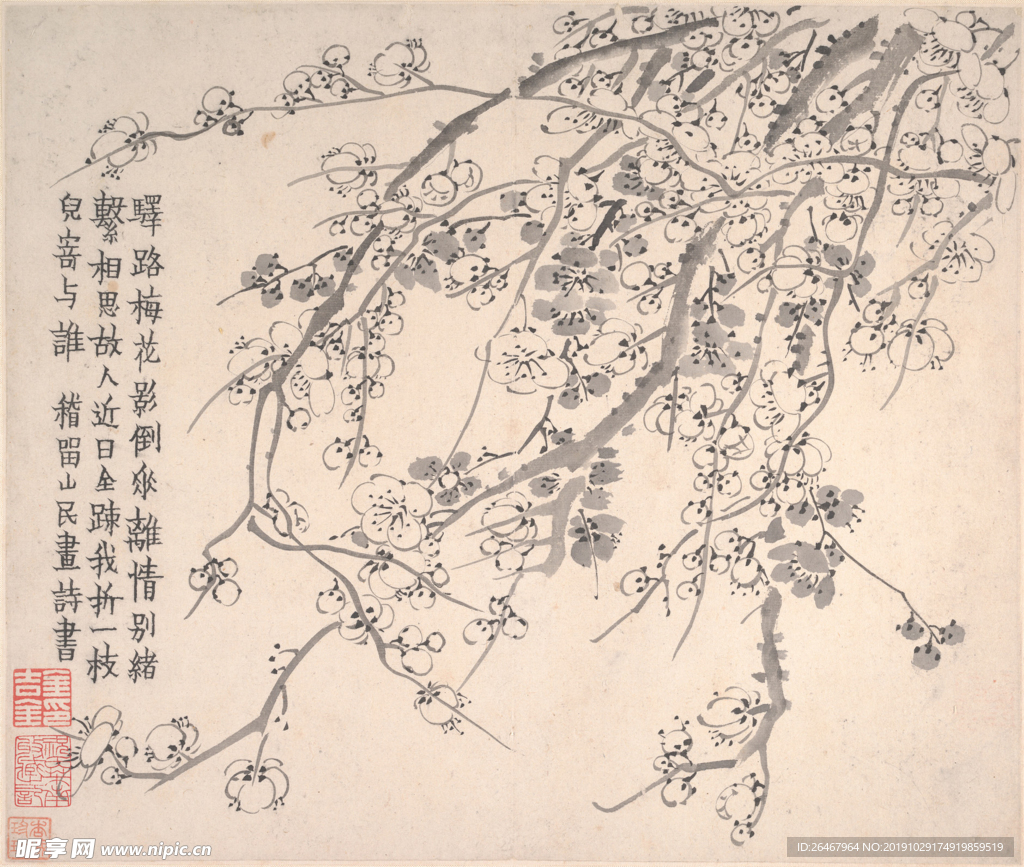 驛路梅花影倒垂離情別緒
繫相思故人近日全踈我折一枝
兒寄与誰 稽留山民畫詩書
昵享网 www.nipic.cn
ID:26467964 NO:20191029174919859519